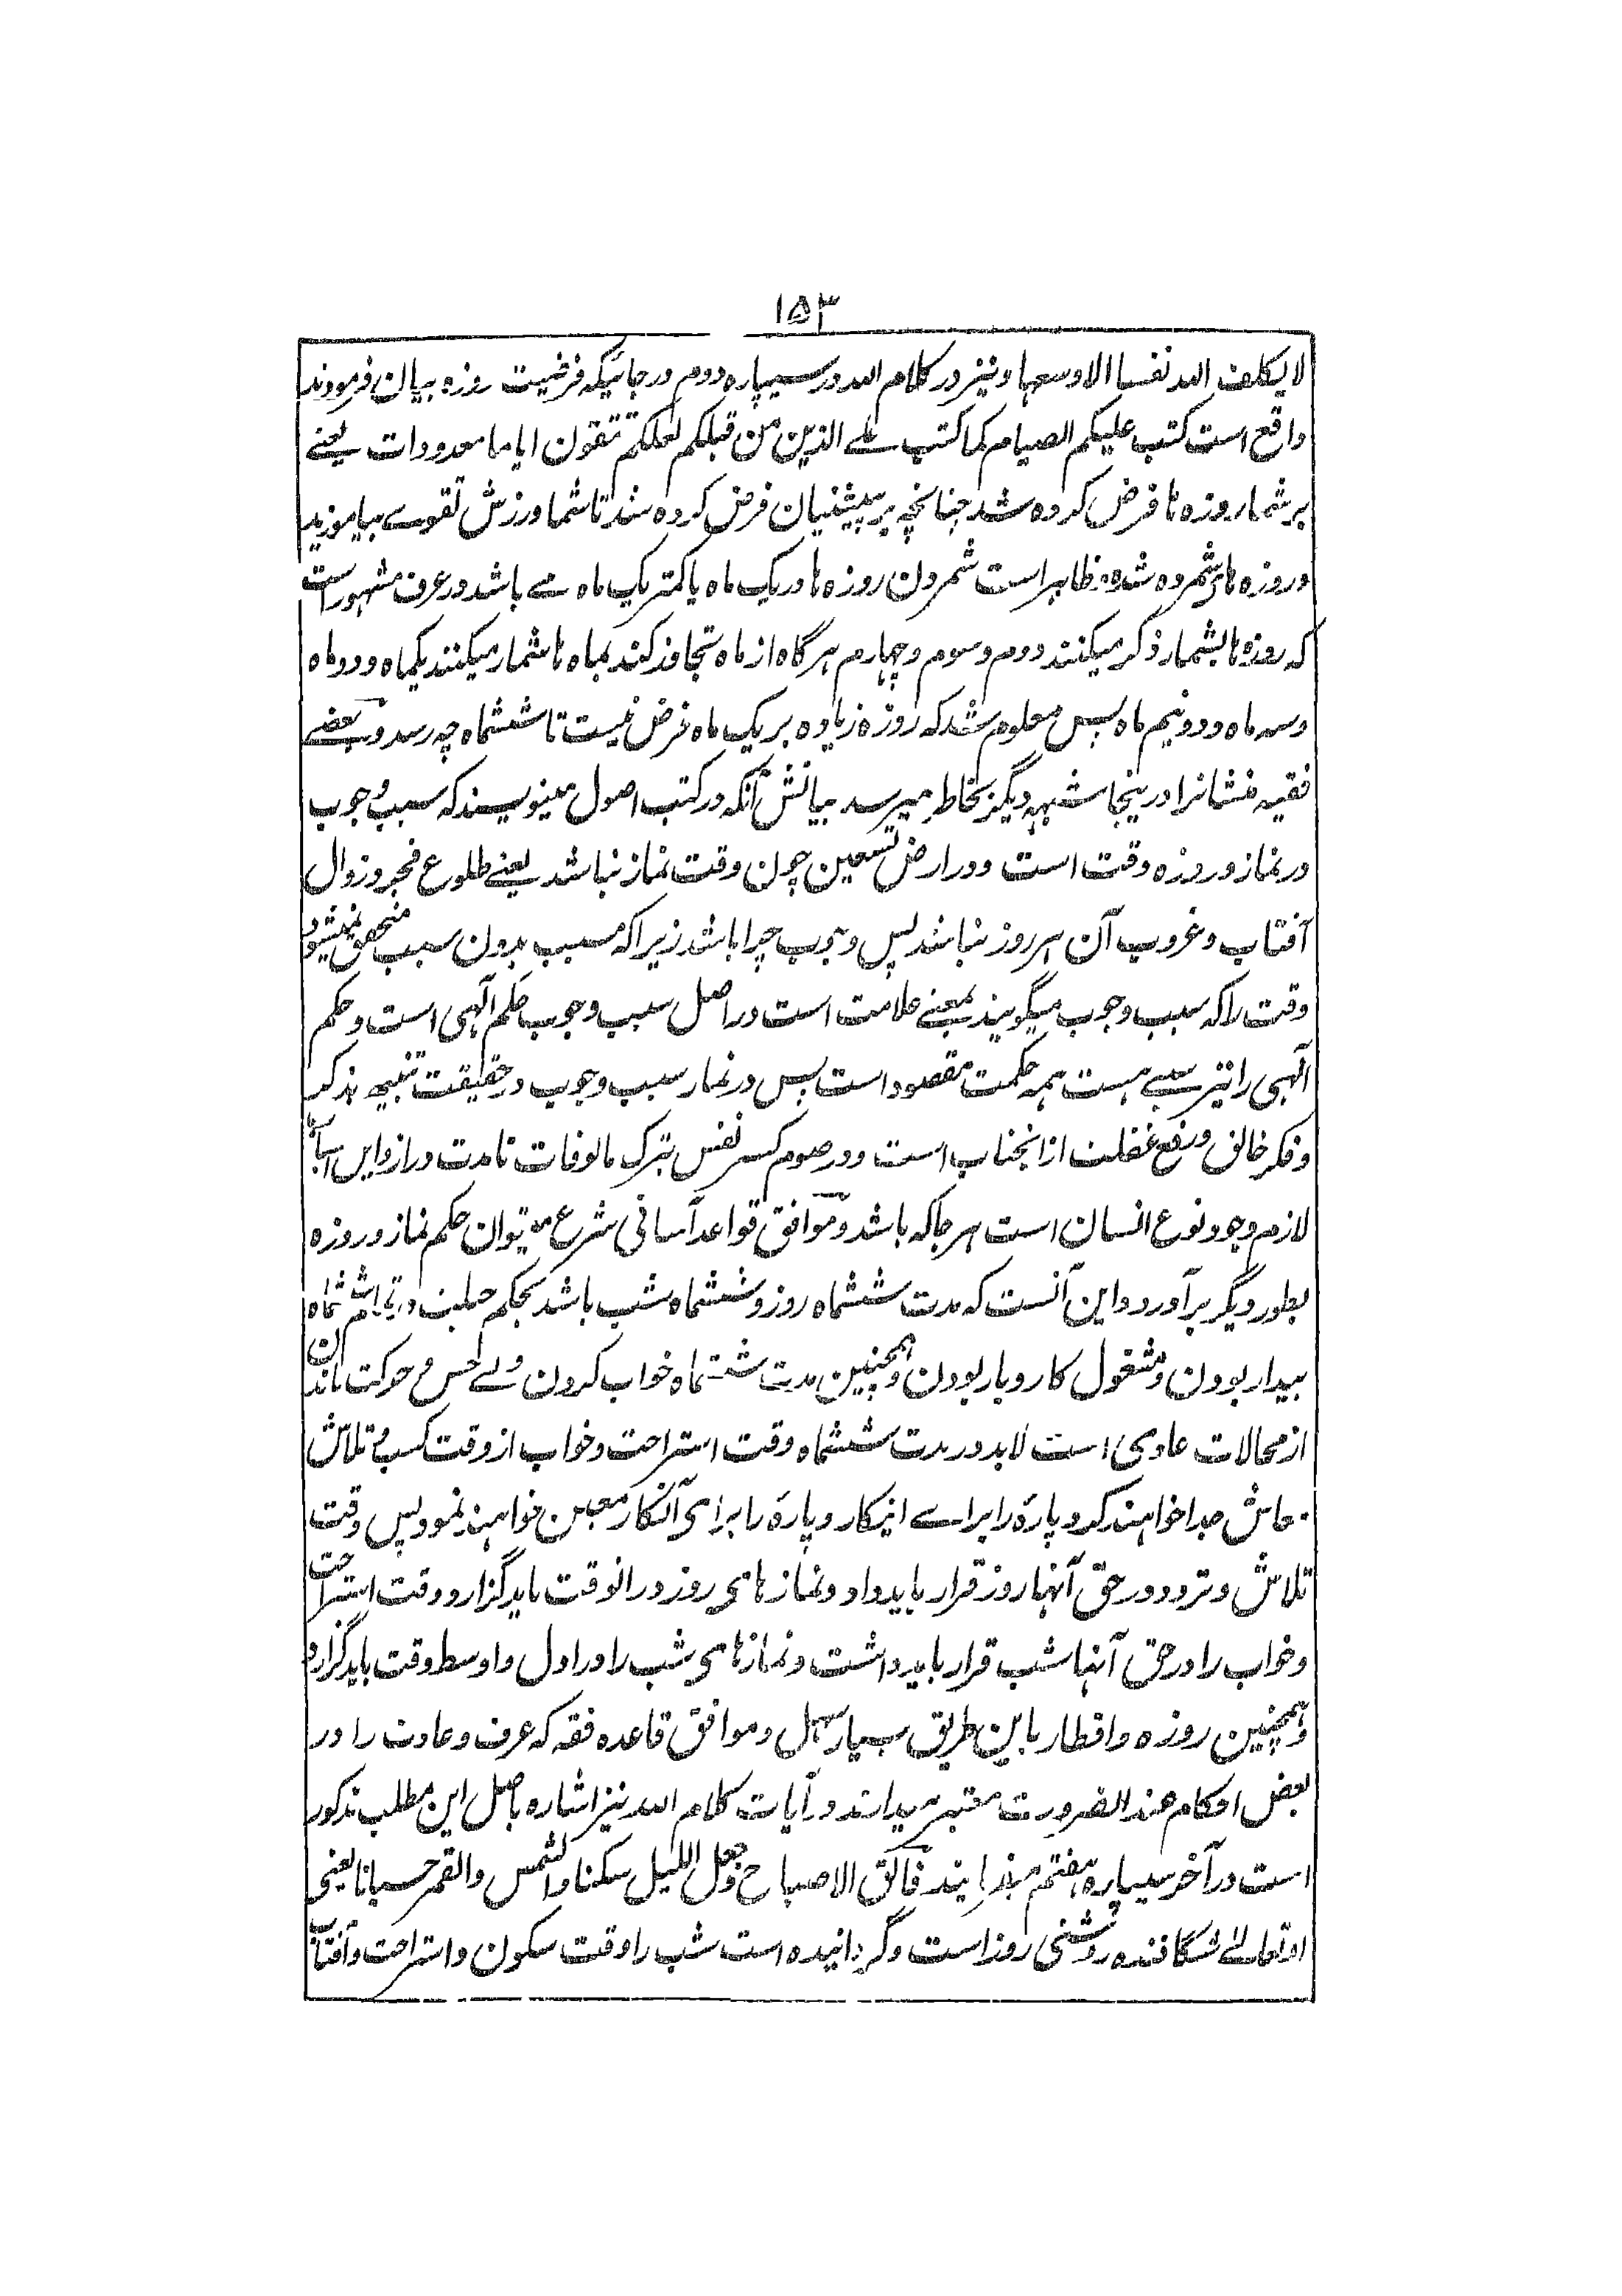 ۱۵۳
لا یکلف الله نفسا الا وسعها و نیز در کلام الله در سیپاره دوم در جائیکه فرضیت روزه بیان فرمودند
واقع است کتب علیکم الصیام کما کتب علے الذین من قبلکم لعلکم تتقون ایاما معدودات یعنے
بر شما روزه ها فرض کرده شد چنانچه بر پیشنیان فرض کرده شد تا شما ورزش تقوے بیاموزید
و روزه های شمرده شده ظاهر است شمردن روزه ها در یک ماه یا کمتر یک ماه مے باشد در عرف مشهور است
که روزه ها بشمار ذکر میکنند دوم و سوم و چهارم هرگاه از ماه تجاوز کند بماه ها شمار میکنند یکماه و دو ماه
و سه ماه و دو نیم ماه پس معلوم شد که روزه زیاده بر یک ماه فرض نیست تا ششماه چه رسد و بعضے
فقیه منشانرا درینجا شبهه دیگر بخاطر میرسد بیانش آنکه در کتب اصول مینویسند که سبب وجوب
در نماز و روزه وقت است و در ارض تسعین چون وقت نماز نباشد یعنے طلوع فجر و زوال
آفتاب و غروب آن هر روز نباشد پس وجوب چرا باشد زیرا که مسبب بدون سبب متحقق نمیشود
وقت را که سبب وجوب میگویند بمعنے علامت است در اصل سبب وجوب حکم آلهی است و حکم
آلهی را نیز سببے هست همه حکمت مقصود است پس در نماز سبب وجوب در حقیقت تنبیه بذکر
و فکر خالق و رفع غفلت ازانجناب است و در صوم کسر نفس بترک مالوفات تا مدت دراز و این اسباب
لازم وجود نوع انسان است هر جا که باشد و موافق قواعد آسانی شرع مے توان حکم نماز و روزه
بطور دیگر برآورد و این آنست که مدت ششماه روز و ششماه شب باشد بحکم جبلت در تمام ششماه
بیدار بودن و مشغول کاروبار بودن و همچنین مدت ششماه خواب کردن و بے حس و حرکت ماندن
از محالات عادی است لابد در مدت ششماه وقت استراحت و خواب از وقت کسب و تلاش
معاش جدا خواهند کرد پارۀ را براے اینکار و پارۀ را برای آنکار معین خواهند نمود پس وقت
تلاش و تردد در حق آنها روز قرار باید داد و نماز های روز در انوقت باید گزارد و وقت استراحت
و خواب را در حق آنها شب قرار باید داشت و نمازهای شب را در اول و اوسط وقت باید گزارد
و همچنین روزه و افطار باین طریق بسیار سهل و موافق قاعده فقه که عرف و عادت را در
بعض احکام عند الضرورت معتبر میدارند در آیات کلام الله نیز اشاره باصل این مطلب مذکور
است در آخر سیپاره هفتم میفرمایند فالق الاصباح و جعل اللیل سکنا و الشمس و القمر حسبانا یعنی
او تعالے شگافنده روشنی روز است و گردانیده است شب را وقت سکون و استراحت و آفتاب